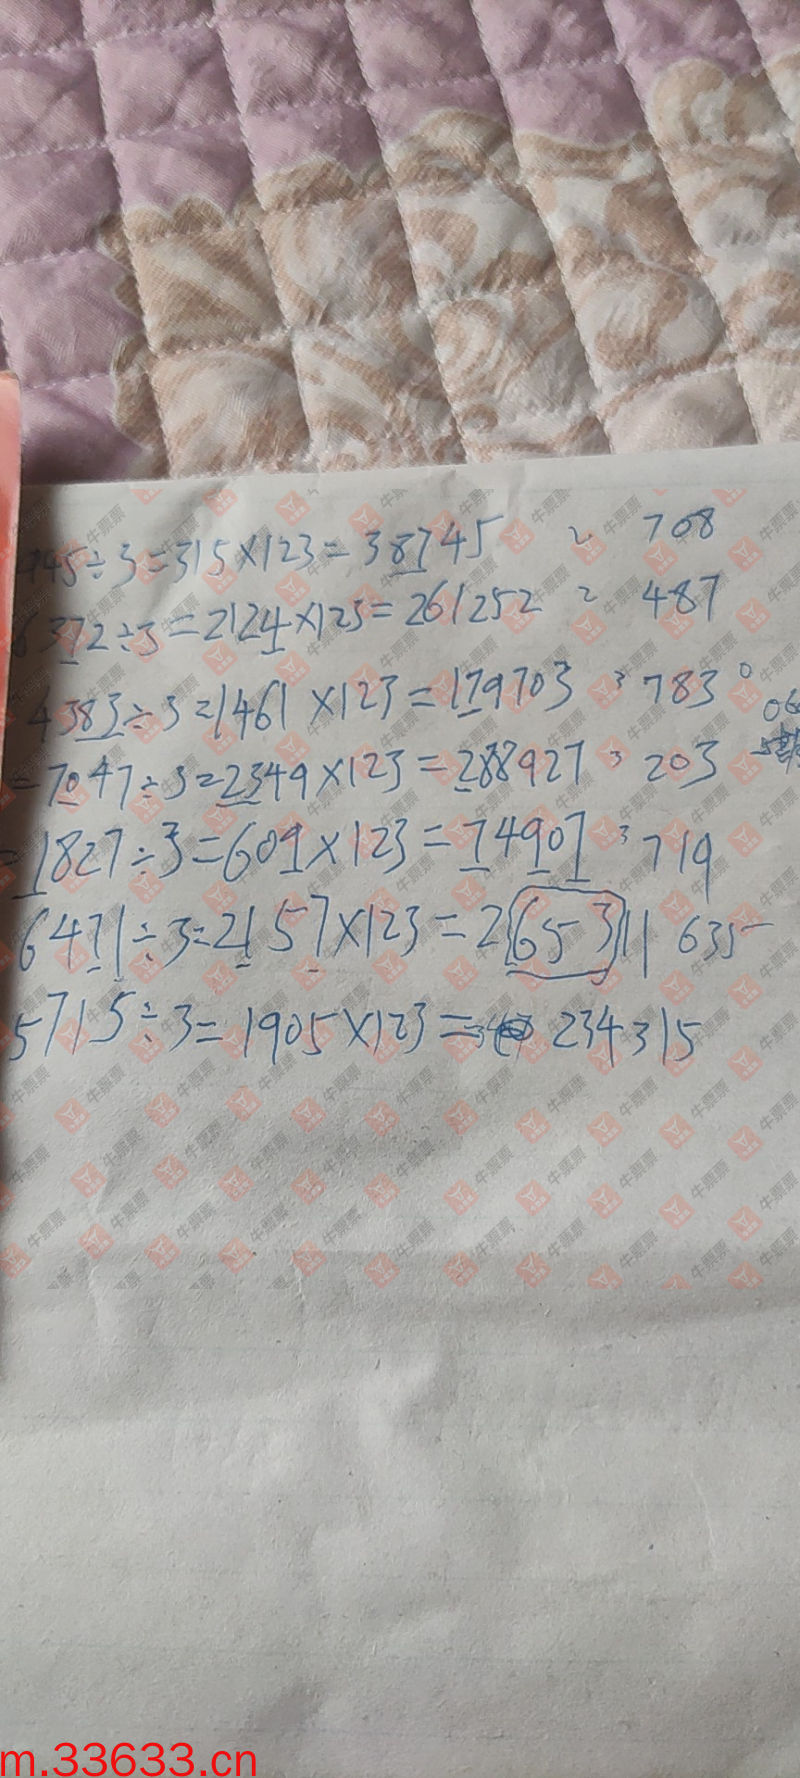 945÷3=315×123=38745 2 708
6372÷3=2124×123=261252 2 487
4383÷3=1461×123=179703 3 783 0
=7047÷3=2349×123=288927 3 203
=1827÷3=609×123=74907 3 719
6471÷3=2157×123=265311 635
5715÷3=1905×123= 234315
牛票票
m.33633.cn